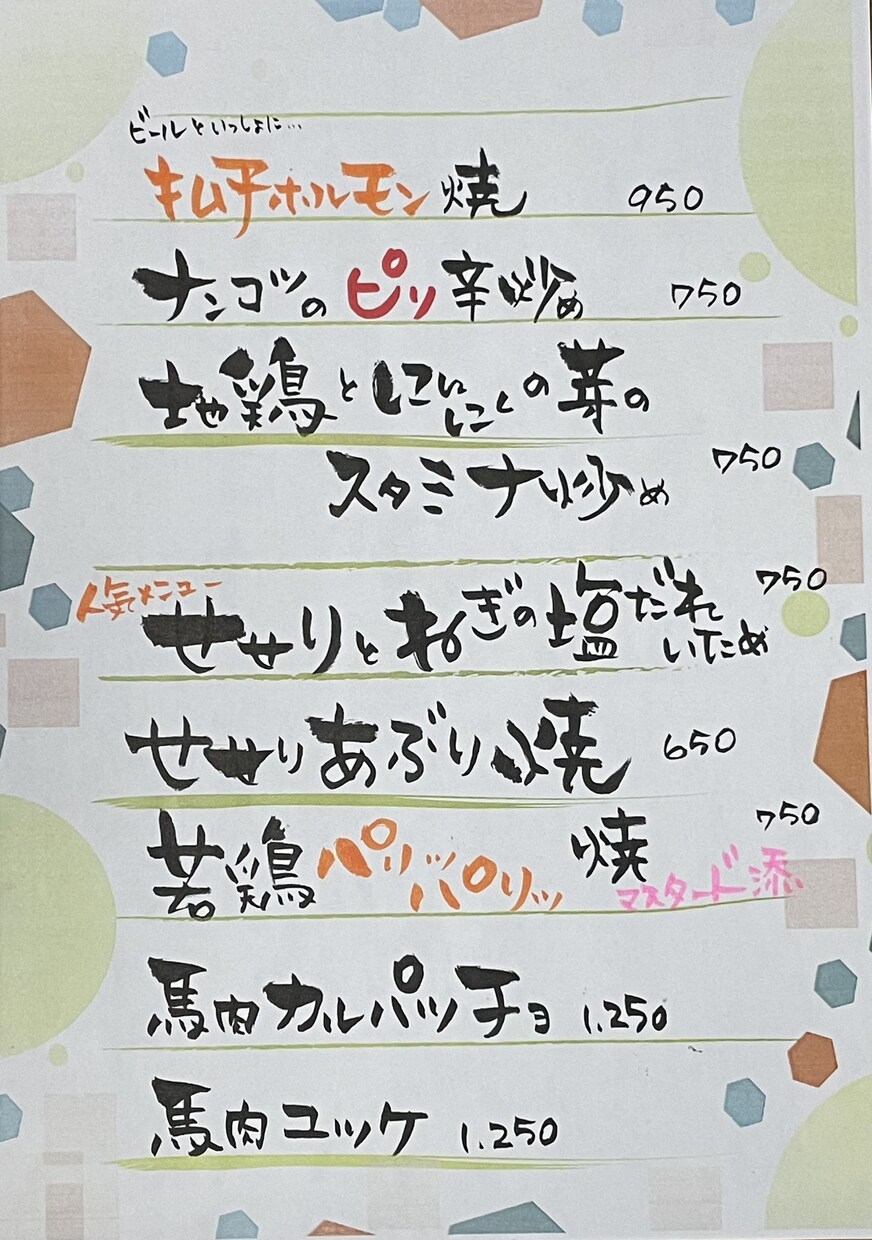 ビールといっしょに…
キムチホルモン焼 950
ナンコツのピリ辛炒め 750
地鶏とにんにくの芽の
スタミナ炒め 750
人気メニュー
せせりとねぎの塩だれ 750
いため
せせりあぶり焼 650
若鶏パリッパリッ焼 750
マスタード添
馬肉カルパッチョ 1.250
馬肉ユッケ 1.250